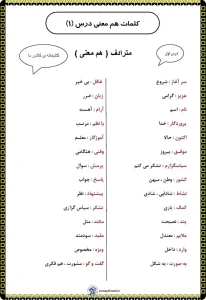 کلمات هم معنی درس (۱)
درس اول
مترادف ( هم معنی )
کتابخانه ی کلاس ما
سر آغاز : شروع
عزیز : گرامی
نام : اسم
پروردگار : خدا
اکنون : حالا
موفق : پیروز
سپاسگزارم : تشکر می کنم
کشور : وطن ، میهن
نشاط : شادابی ، شادی
کمک : یاری
پند : نصیحت
ملایم : معتدل
وارد : داخل
به صورت : به شکل
غافل : بی خبر
زیان : ضرر
آرام : آهسته
با نظم : مرتب
آموزگار : معلم
وقتی : هنگامی
پرسش : سوال
پاسخ : جواب
پیشنهاد : نظر
تشکر : سپاس گزاری
مانند : مثل
مفید : سودمند
ویژه : مخصوص
گفت و گو : مشورت ، هم فکری